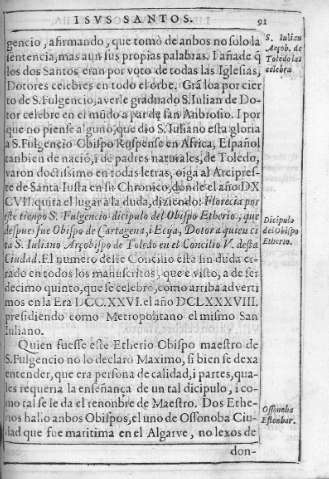 I SVS SANTOS.
91
gencio, afirmando, que tomò de anbos no solo la
sentencia, mas aun sus propias palabras. I añade q̃
los dos Santos eran por voto de todas las Iglesias,
Dotores celebres en todo el orbe. Grã loa por cier
to de S. Fulgencio, averle graduado S. Iulian de Do-
tor celebre en el mũdo a par de san Anbrosio. I por
que no piense alguno, que dio S. Iuliano esta gloria
a S. Fulgencio Obispo Ruspense en Africa, Español
tanbien de naciõ, i de padres naturales, de Toledo,
varon doctissimo en todas letras, oiga al Arcipres-
te de Santa Iusta en su Chronico, donde el año DX
CVII. quita el lugar à la duda, diziendo: Florecia por
este tienpo S. Fulgencio dicipulo del Obispo Etherio, que
despues fue Obispo de Cartagena, i Ecija, Dotor a quien ci
ta S. Iuliano Arçobispo de Toledo en el Concilio V. desta
Ciudad. El numero deste Concilio està sin duda er-
rado en todos los manuscritos, que è visto, a de ser
decimo quinto, que se celebrò, como arriba adverti
mos en la Era DCC.XXVI. el año DCLXXXVIII.
presidiendo como Metropolitano el mismo San
Iuliano.
Quien fuesse este Etherio Obispo maestro de
S. Fulgencio no lo declarò Maximo, si bien se dexa
entender, que era persona de calidad, i partes, qua-
les requeria la enseñança de un tal dicipulo, i co-
mo tal se le da el renonbre de Maestro. Dos Ethe-
rios hallo anbos Obispos, el uno de Ossonoba Ciu-
dad que fue maritima en el Algarve, no lexos de
don-
S. Iulian
Arçob. de
Toledo las
celebra
Dicipulo
del Obispo
Etherio.
Ossonoba
Estonbar.